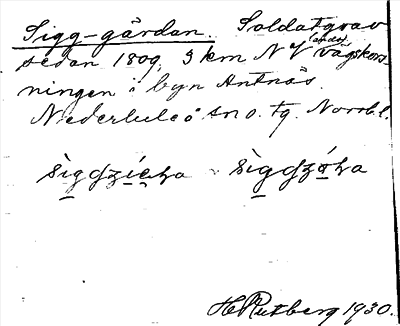 Sigg-gårdan. Soldatgrav
sedan 1809, 3 km N af (lands) vägskors-
ningen i byn Antnäs.
Nederluleå sn o. tg. Norrb. l.
H. Rutberg 1930.